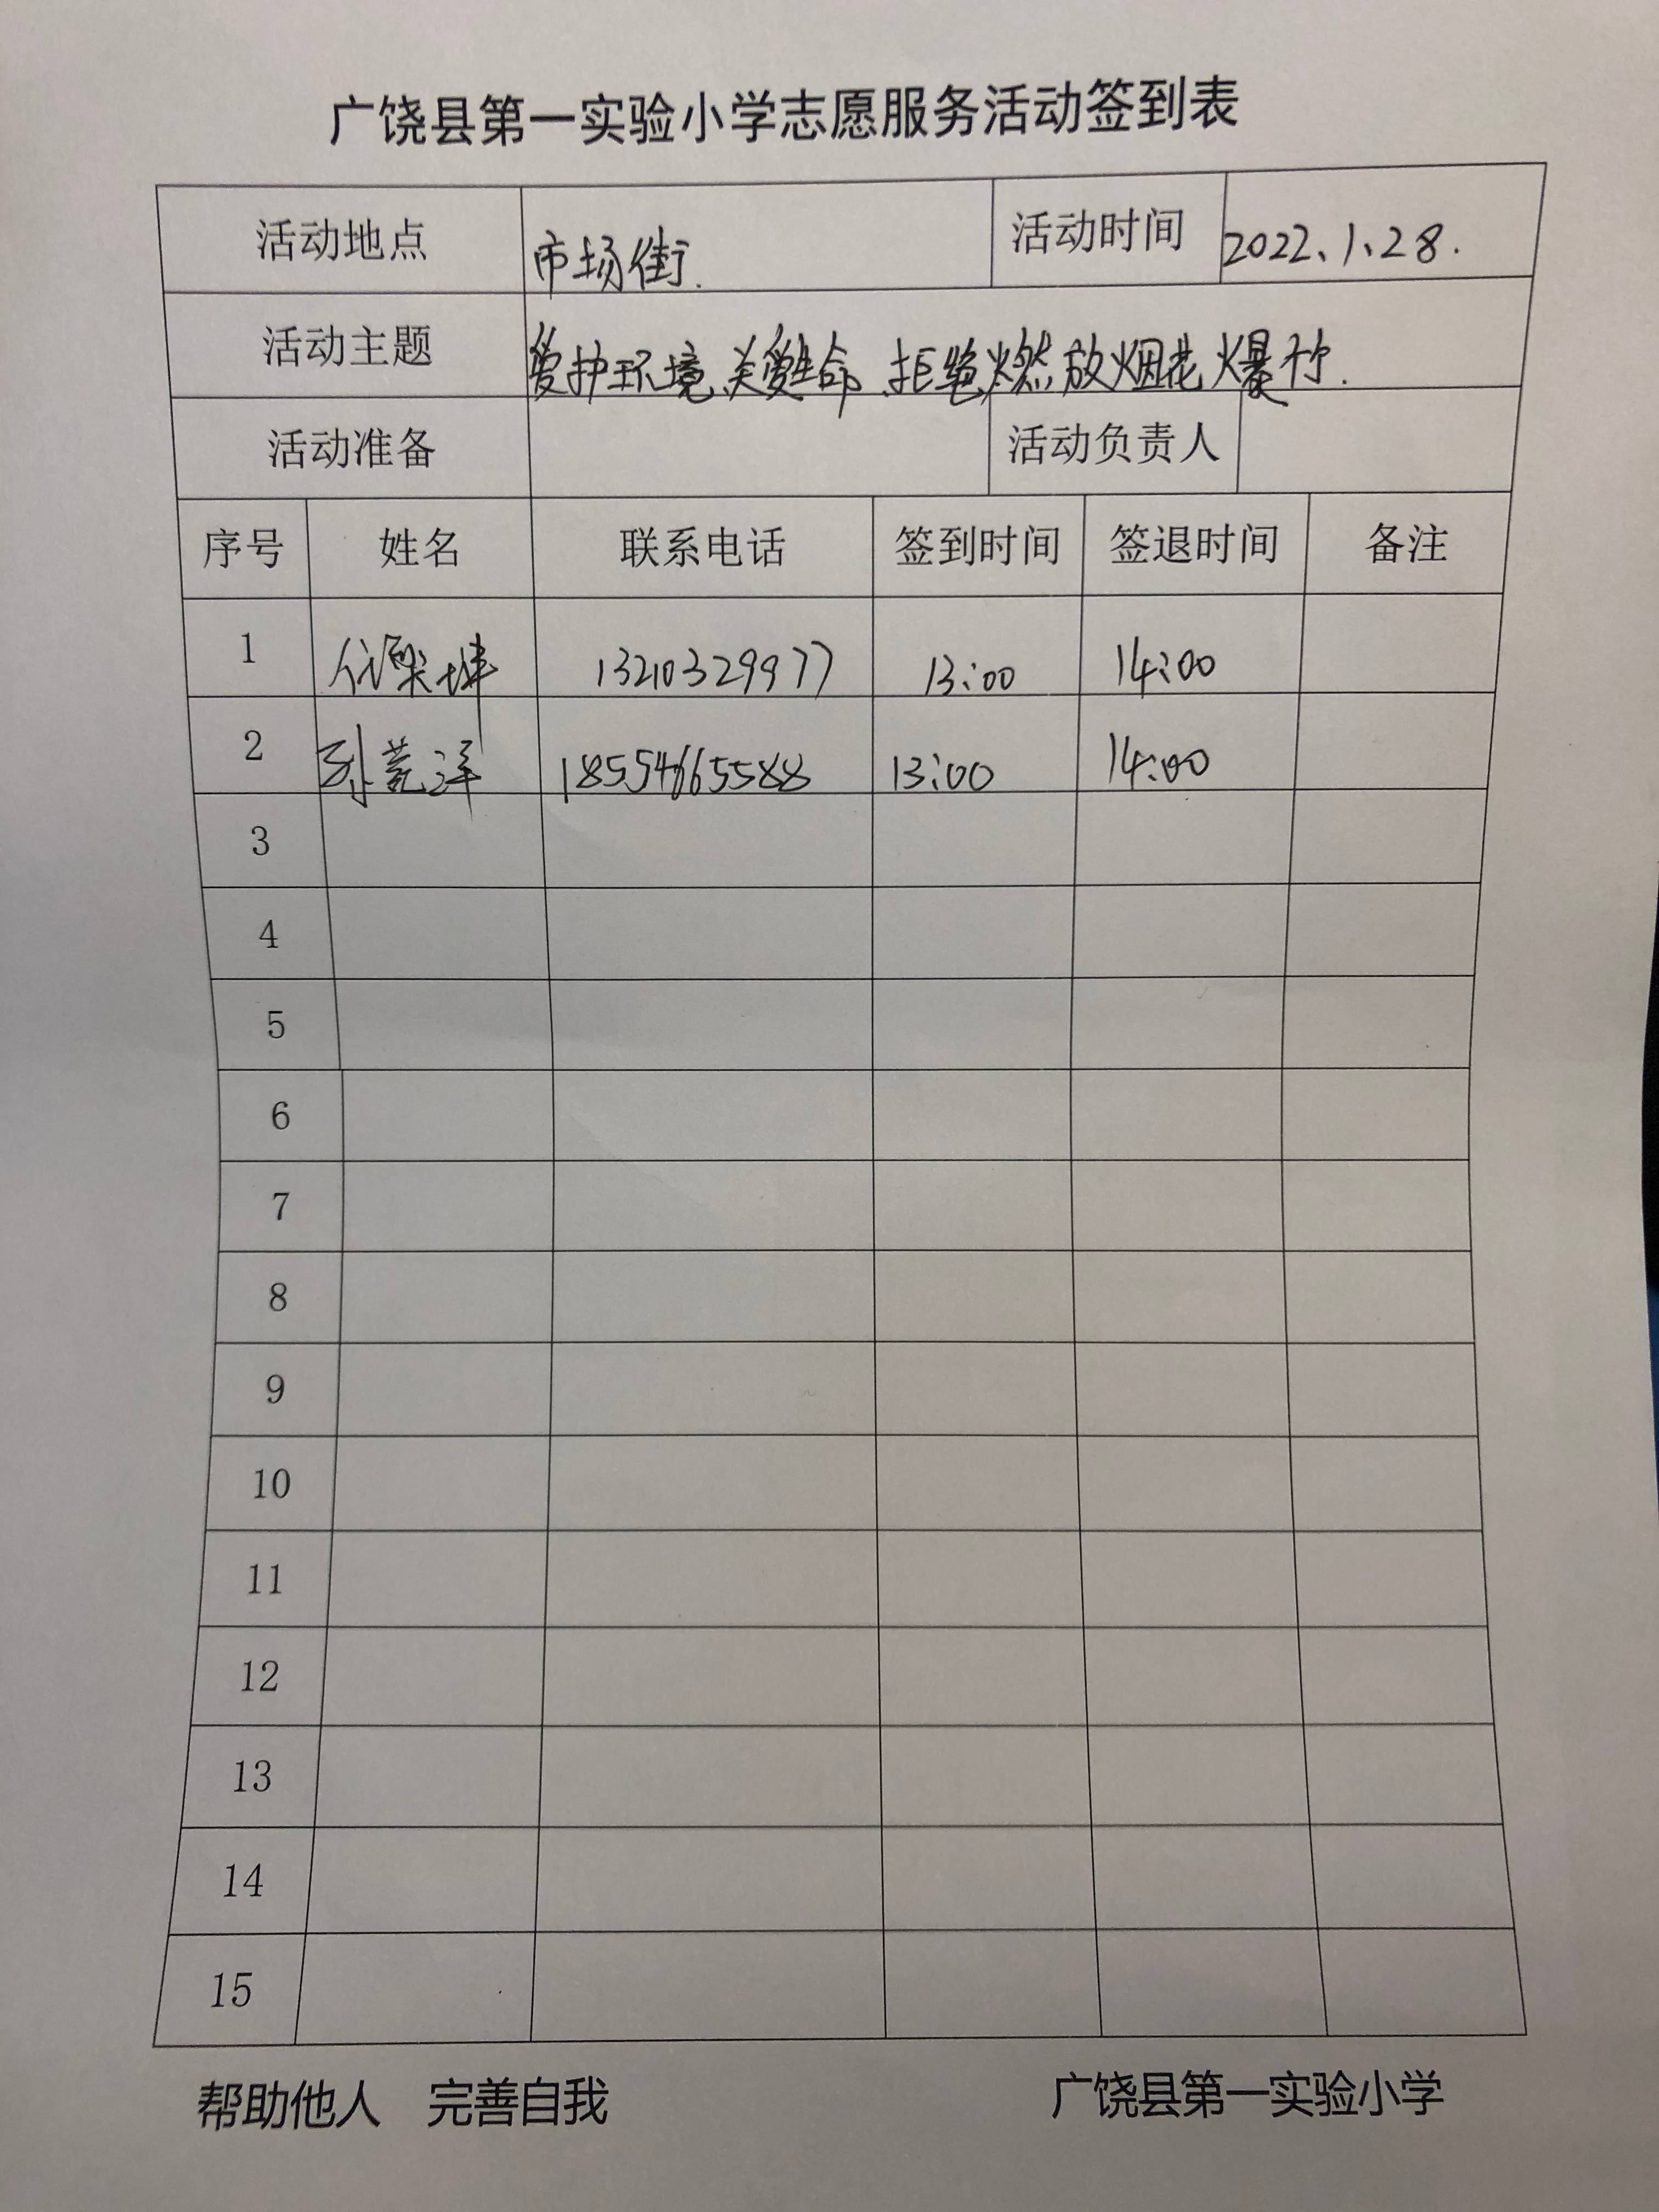 广饶县第一实验小学志愿服务活动签到表
活动地点 市场街. 活动时间 2022、1、28.
活动主题 爱护环境、关爱生命、拒绝燃放烟花爆竹.
活动准备 活动负责人
序号 姓名 联系电话 签到时间 签退时间 备注
1 13210329977 13:00 14:00
2 18554665588 13:00 14:00
3
4
5
6
7
8
9
10
11
12
13
14
15
帮助他人 完善自我 广饶县第一实验小学